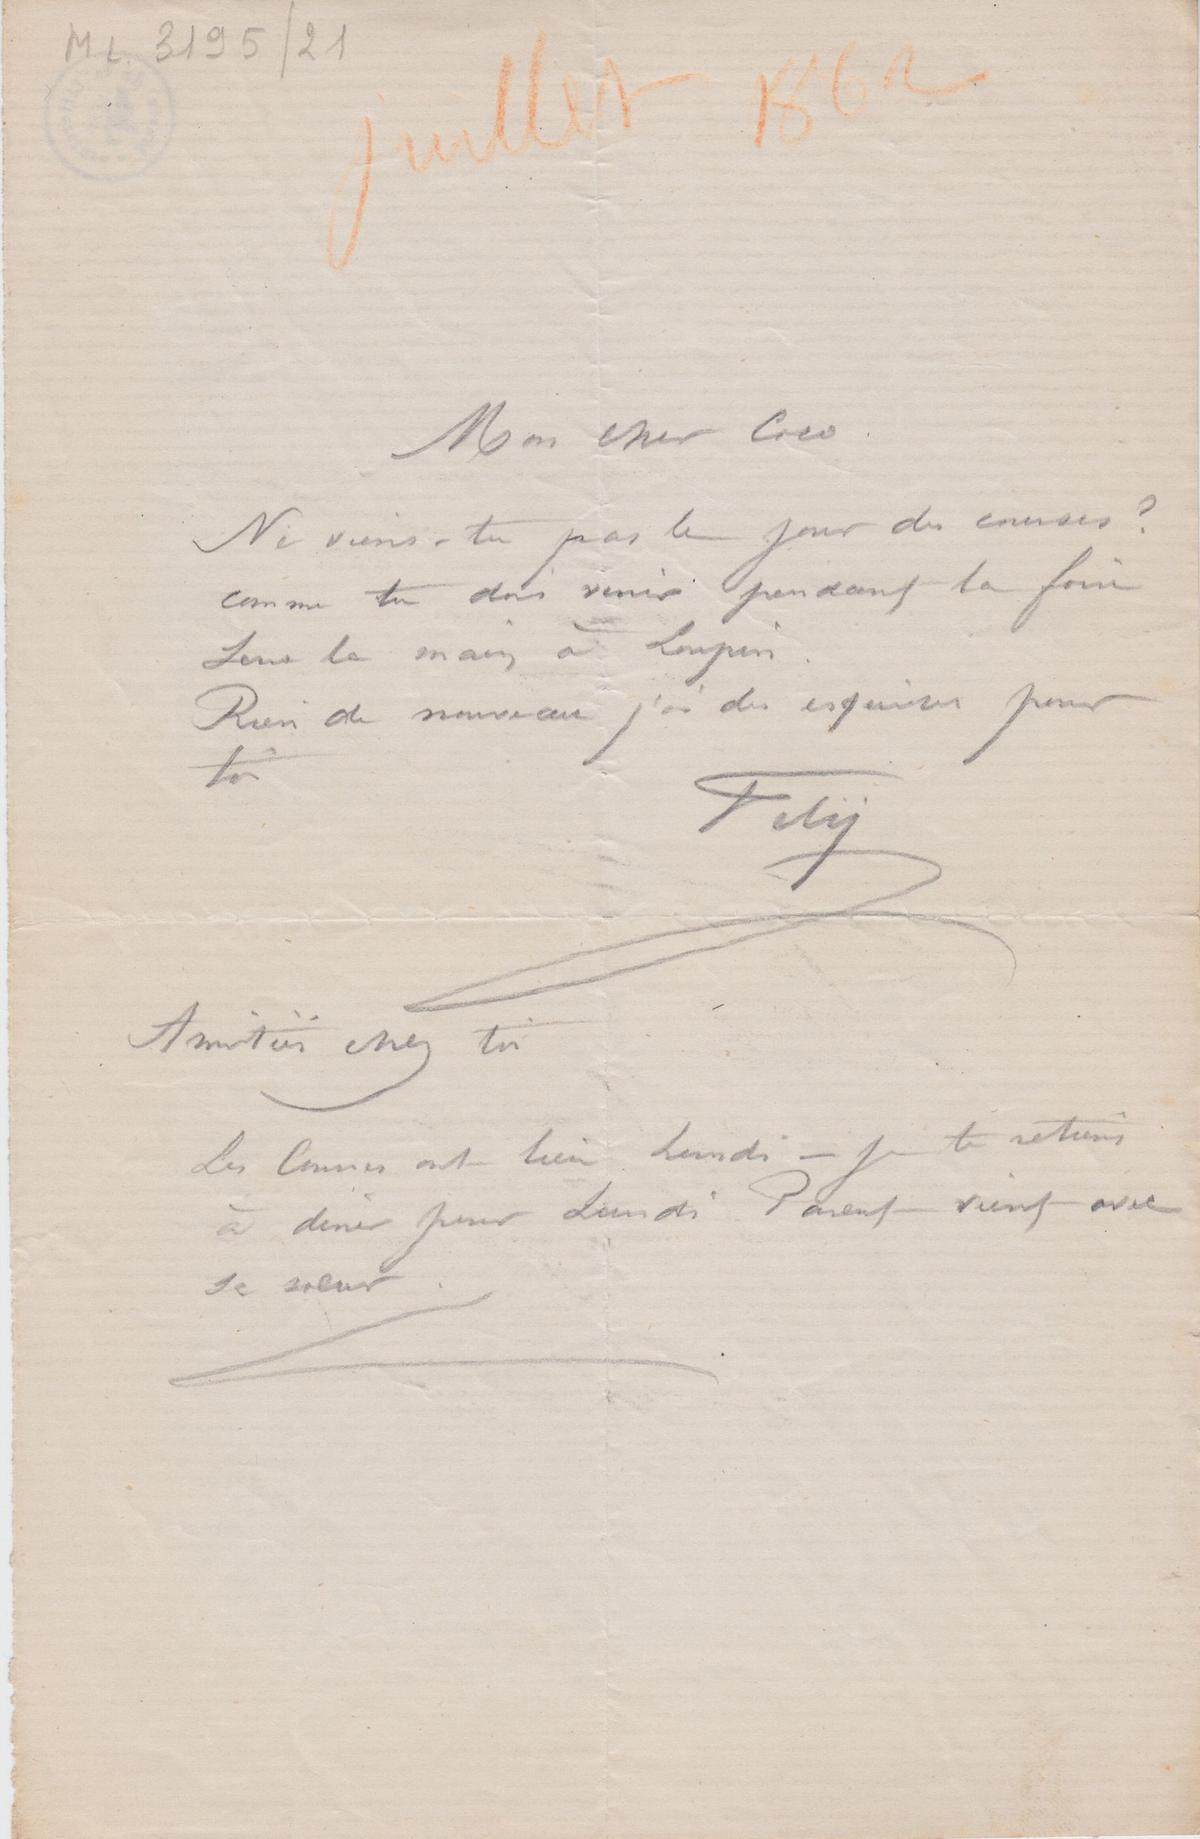 ML. 3195/21
juillet 1862
Mon cher Coco.
Ne viens-tu pas le jour des courses ?
comme tu dois venir pendant la foire
Serre la main à Loupin.
Rien de nouveau j'ai des esquises pour
toi
Fely
Amitiés chez toi
Les Courses ont lieu Lundi – je te retiens
à diner pour Lundi Parent vient avec
sa soeur.